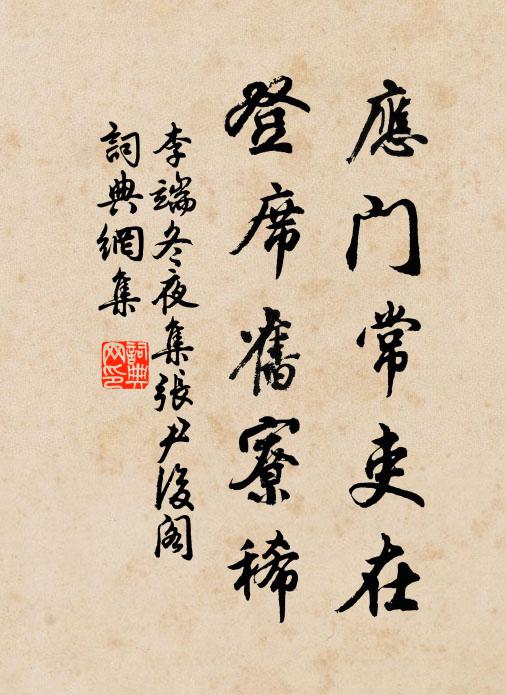 應門常吏在
登席舊寮稀
李端冬夜集張尹後阁
詞典網集
詞典网印